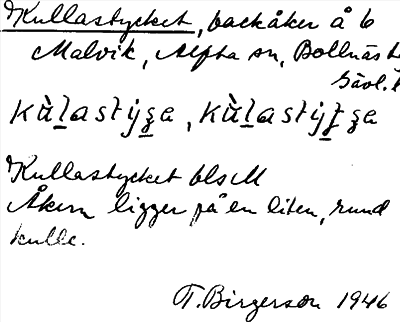 Kullastycket, backåker å 6
Malvik, Alfta sn, Bollnäs
Gävl.
kùl̲astýʒ̲a, kùl̲astýt̲ʒa
Kullastycket bls M
Åkern ligger på en liten, rund
kulle.
T. Birgerson 1946